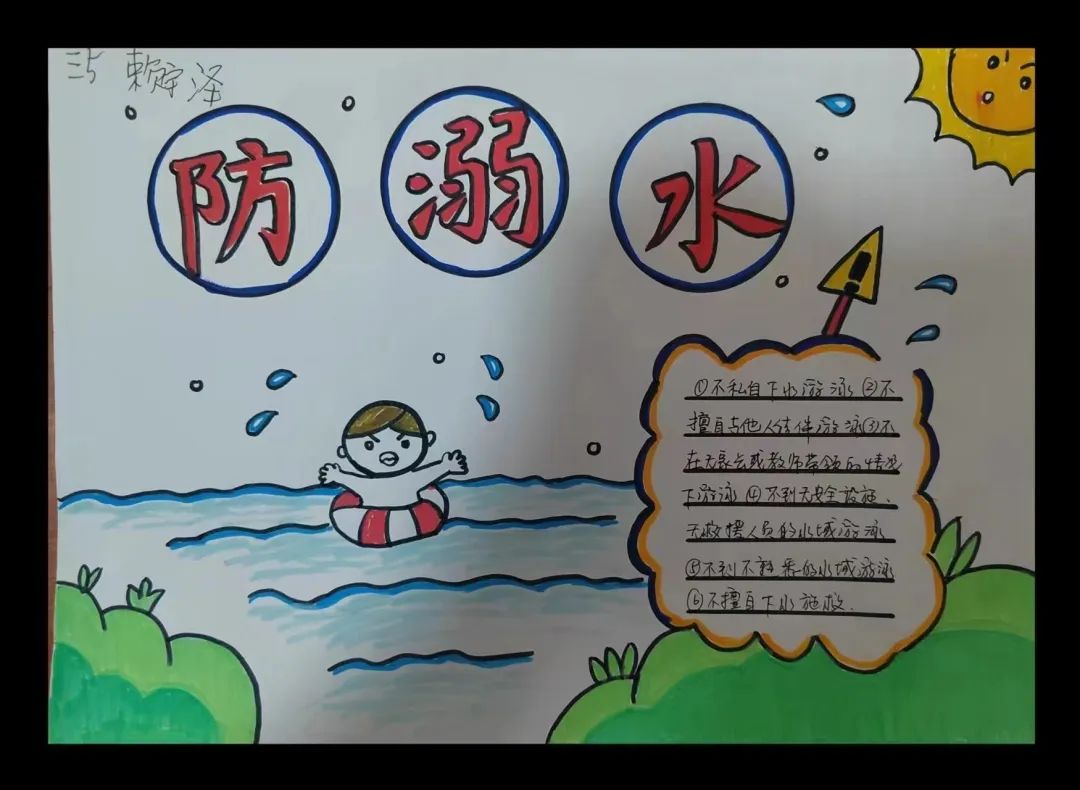 三5 赖贮泽
防溺水
①不私自下水游泳②不
擅自与他人结伴游泳③不
在无家长或教师带领的情况
下游泳④不到无安全设施、
无救援人员的水域游泳
⑤不到不熟悉的水域游泳
⑥不擅自下水施救.